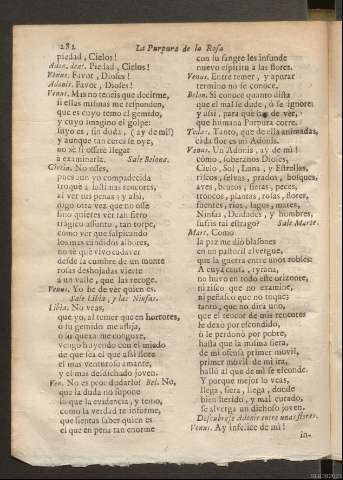 282 La Purpura de la Rosa
piedad, Cielos!
Adon. dent. Piedad, Cielos!
Venus. Favor, Dioses!
Adonis. Favor, Dioses!
Venus. Mas no teneis que decirme,
si ellas mismas me responden,
que es cuyo temo el gemido,
y cuyo imagino el golpe:
suyo es, sin duda, (ay de mi!)
y aunque tan cerca se oye,
no sè si osarè llegar
à examinarla. Sale Belona.
No osses,
pues aun yo compadecida
troque à lastimas rencores,
al vèr tus penas y al
digo otra vez que no osse
sino quieres vèr tan fiero
tragico assunto, tan torpe,
como vèr que salpicando
los mas candidos albores,
no se què vivo cadaver
desde la cumbre de un monte
rosas deshojadas vierte
à un valle, que las recoge.
Venus. Yo he de vèr quien es.
Sale Libia, y las Ninfas.
Libia. No veas,
que yo, al temer que en horrores,
o su gemido me aflija,
ò su quexa me congoxe,
vengo huyendo con el miedo
de que sea el que assi llore
el mas venturoso amante,
y el mas desdichado joven.
Ven. No es possi dudarlo? Bel. No,
que la duda no supone
lo que la evidencia, y temo,
como la verdad te informe,
que sientas saber quien es
el que en pena tan enorme
con su sangre les infunde
nuevo espiritu à las flores.
Venus. Entre temer, y apurar
termino no se conoce.
Belon. Si conoce quanto dista
que el mal se dude, ò se ignore:
y assi, para que has de vèr,
que humana Purpura corre.
Todas. Tanto, que de ella animadas,
cada flor es mi Adonis.
Venus. Un Adonis, ay de mi!
como, soberanos Dioses,
Cielo, Sol, Luna, y Estrellas,
riscos, selvas, prados, bosques,
aves, brutos, fieras, peces,
troncos, plantas, rosas, flores,
fuentes, rios, lagos, mares,
Ninfas, Deidades, y hombres,
sufris tal estrago? Sale Marte.
Mart. Como
la paz me diò blasones
en un pastoril alvergue,
que la guerra entre unos robles:
A cuya causa, tyrana,
no huvo en todo este orizonte,
ni risco que no examine,
ni peñasco que no toques
tanto, que no dira uno,
que el teuor de mis rencores
le dexò por escondido,
ò le perdonò por pobre,
hasta que la misma fiera,
de mi ofensa primer movil,
primer movil de mi ira,
hallò al que de mi se esconde.
Y porque mejor lo veas,
llega, fiera, llega, donde
bien herido, y mal curado,
se alverga un dichoso joven.
Descubrese Adonis entre unas flores.
Venus. Ay infelice de mi!
in-